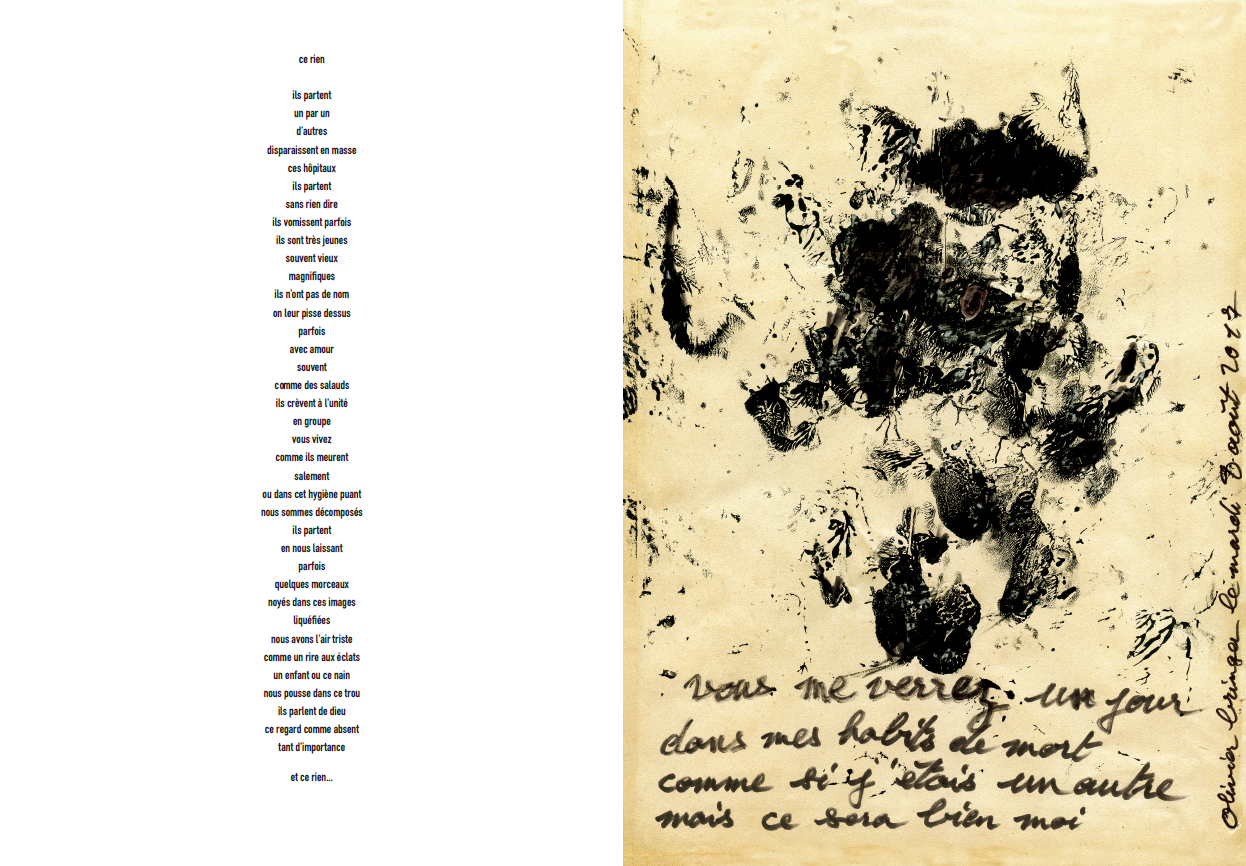 ce rien
ils partent
un par un
d'autres
disparaissent en masse
ces hôpitaux
ils partent
sans rien dire
ils vomissent parfois
ils sont très jeunes
souvent vieux
magnifiques
ils n'ont pas de nom
on leur pisse dessus
parfois
avec amour
souvent
comme des salauds
ils crèvent à l'unité
en groupe
vous vivez
comme ils meurent
salement
ou dans cet hygiène puant
nous sommes décomposés
ils partent
en nous laissant
parfois
quelques morceaux
noyés dans ces images
liquéfiées
nous avons l'air triste
comme un rire aux éclats
un enfant ou ce nain
nous pousse dans ce trou
ils parlent de dieu
ce regard comme absent
tant d'importance
et ce rien...
vous me verrez un jour
dans mes habits de mort
comme si j'étais un autre
mais ce sera bien moi
Olivier bringer le mardi 8 août 2017